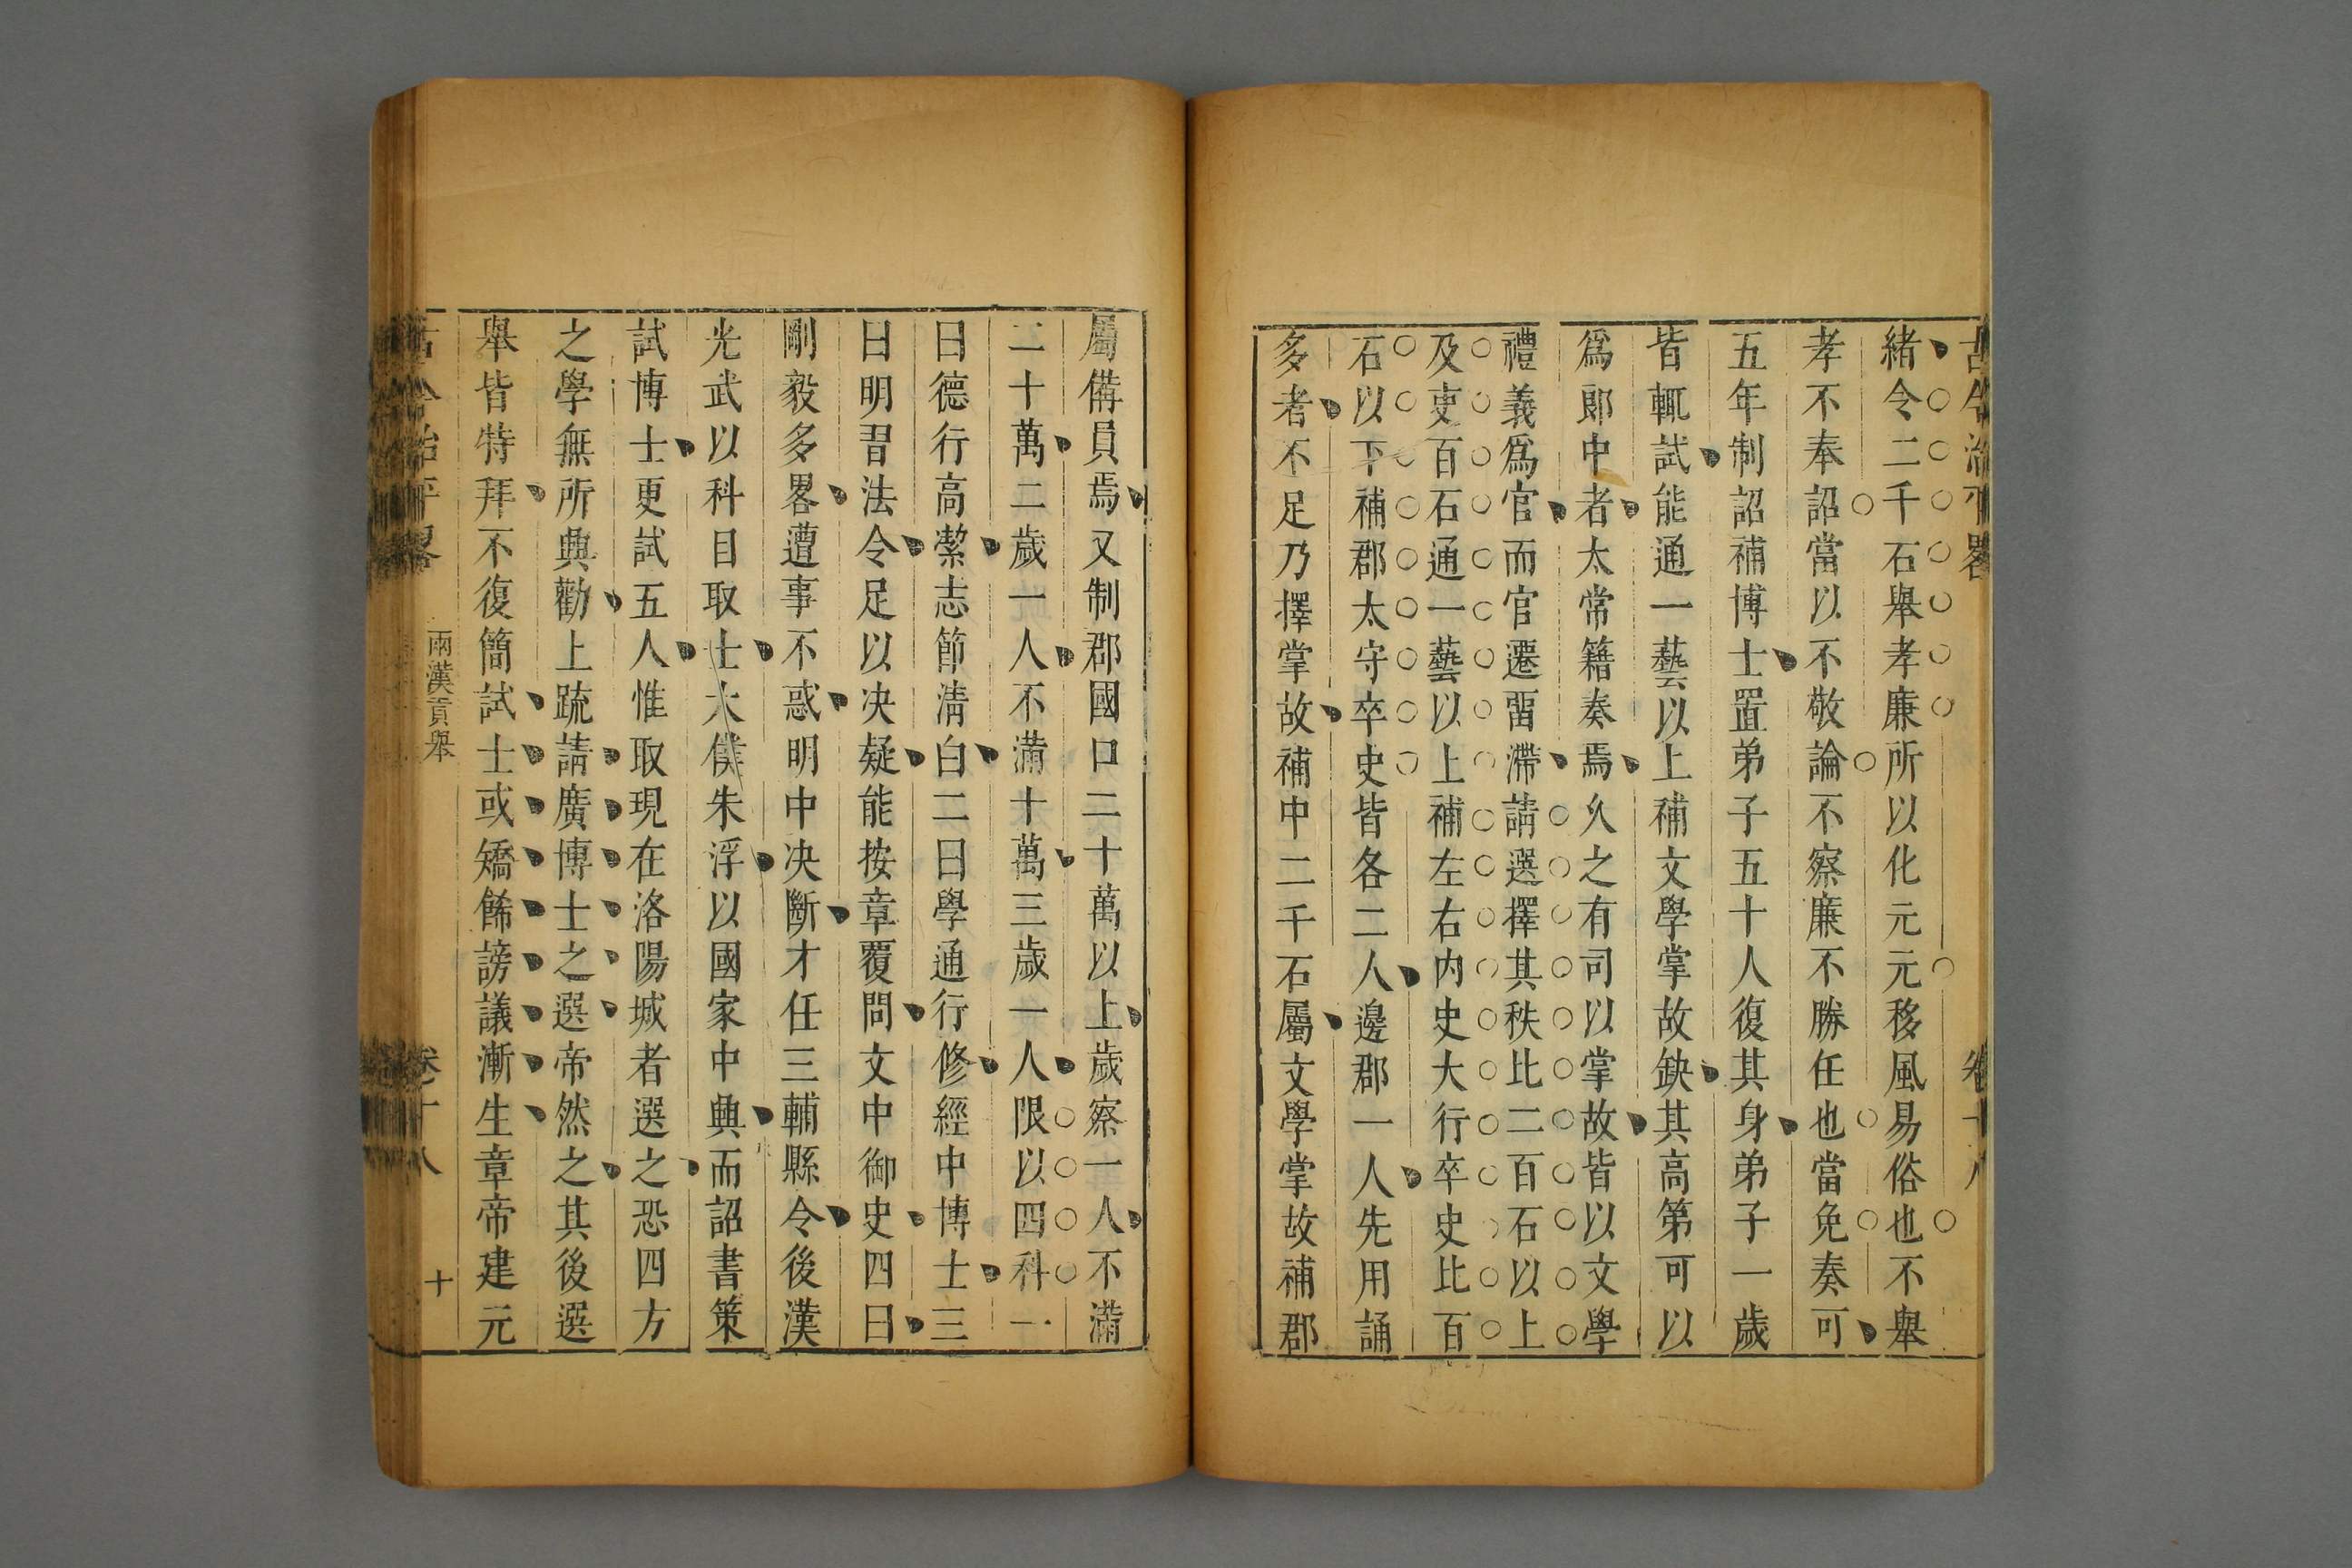 古今治平畧 卷十八
緒令二千石舉孝廉所以化元元移風易俗也不舉
孝不奉詔當以不敬論不察廉不勝任也當免奏可
五年制詔補博士置弟子五十人復其身弟子一歲
皆輒試能通一藝以上補文學掌故缺其高第可以
爲郎中者太常籍奏焉久之有司以掌故皆以文學
禮義爲官而官遷畱滯請選擇其秩比二百石以上
及吏百石通一藝以上補左右內史大行卒史比百
石以下補郡太守卒史皆各二人邊郡一人先用誦
多者不足乃擇掌故補中二千石屬文學掌故補郡
屬備員焉又制郡國口二十萬以上歲察一人不滿
二十萬二歲一人不滿十萬三歲一人限以四科一
曰德行高潔志節清白二曰學通行修經中博士三
曰明習法令足以決疑能按章覆問文中御史四曰
剛毅多畧遭事不惑明中決斷才任三輔縣令後漢
光武以科目取士太僕朱浮以國家中興而詔書策
試博士更試五人惟取現在洛陽城者選之恐四方
之學無所興勸上疏請廣博士之選帝然之其後選
舉皆特拜不復簡試士或矯餙謗議漸生章帝建元
古今治平畧 兩漢貢舉 卷十八 十